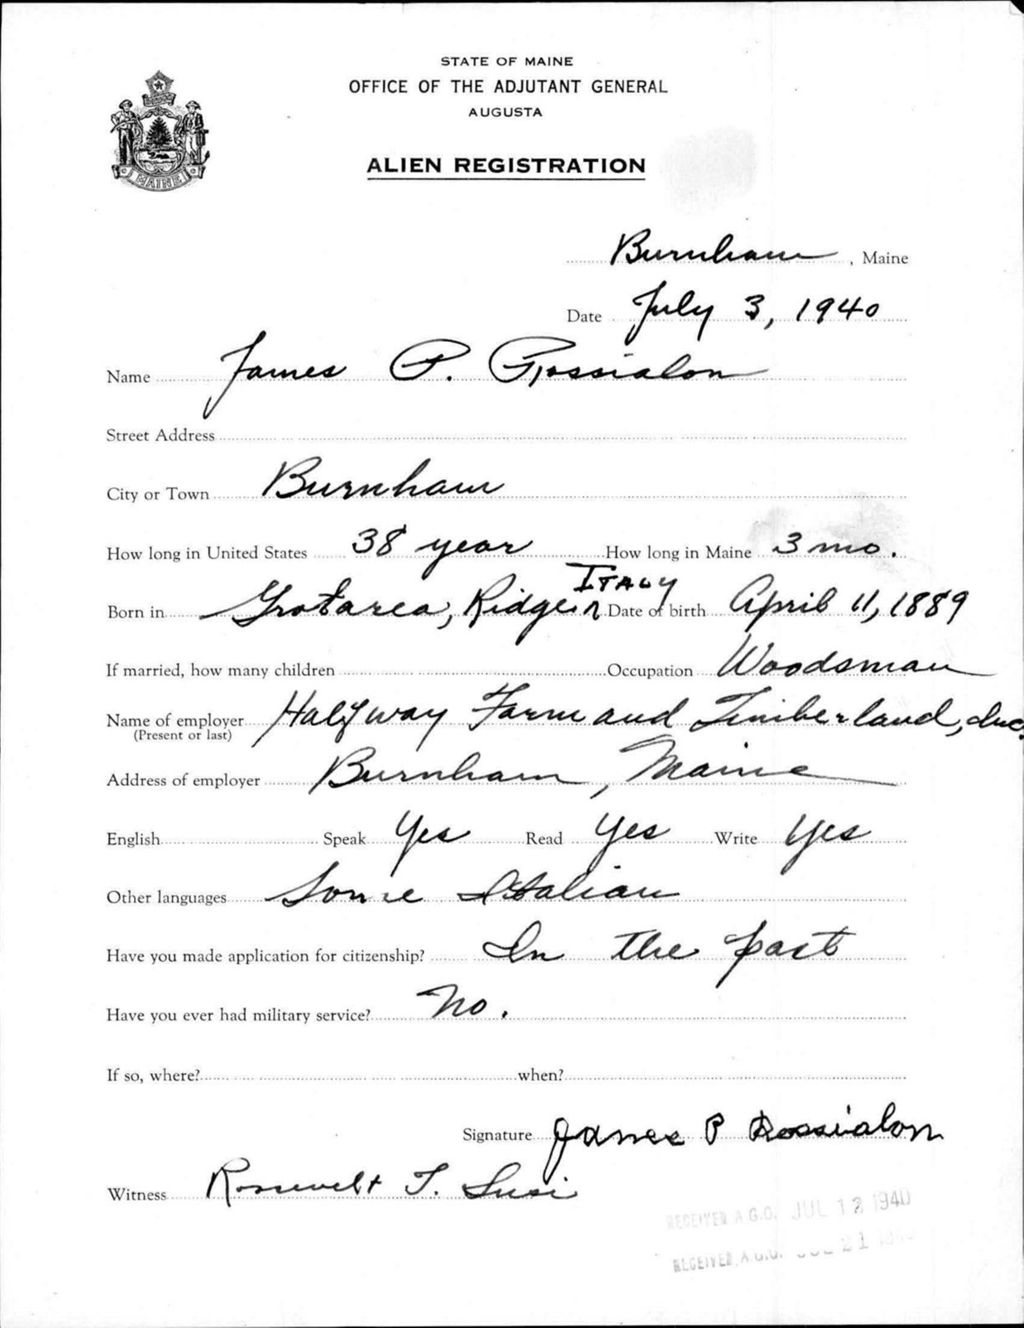 STATE OF MAINE
OFFICE OF THE ADJUTANT GENERAL
AUGUSTA
MAINE
ALIEN REGISTRATION
Burnham, Maine
Date July 3, 1940
Name James P. Rossialon
Street Address
City or Town Burnham
How long in United States 38 year How long in Maine 3 mo.
Italy
Born in Date of birth April 11, 1889
If married, how many children Occupation Woodsman
Name of employer Halfway Farm and Timberland, Inc.
(Present or last)
Address of employer Burnham, Maine
English Speak Yes Read Yes Write Yes
Other languages Some Italian
Have you made application for citizenship? In the past
Have you ever had military service? No.
If so, where? when?
Signature James P Rossialon
Witness Roosevelt T. Susi
RECEIVED A.G.O. JUL 12 1940
RECEIVED A.G.O. 21